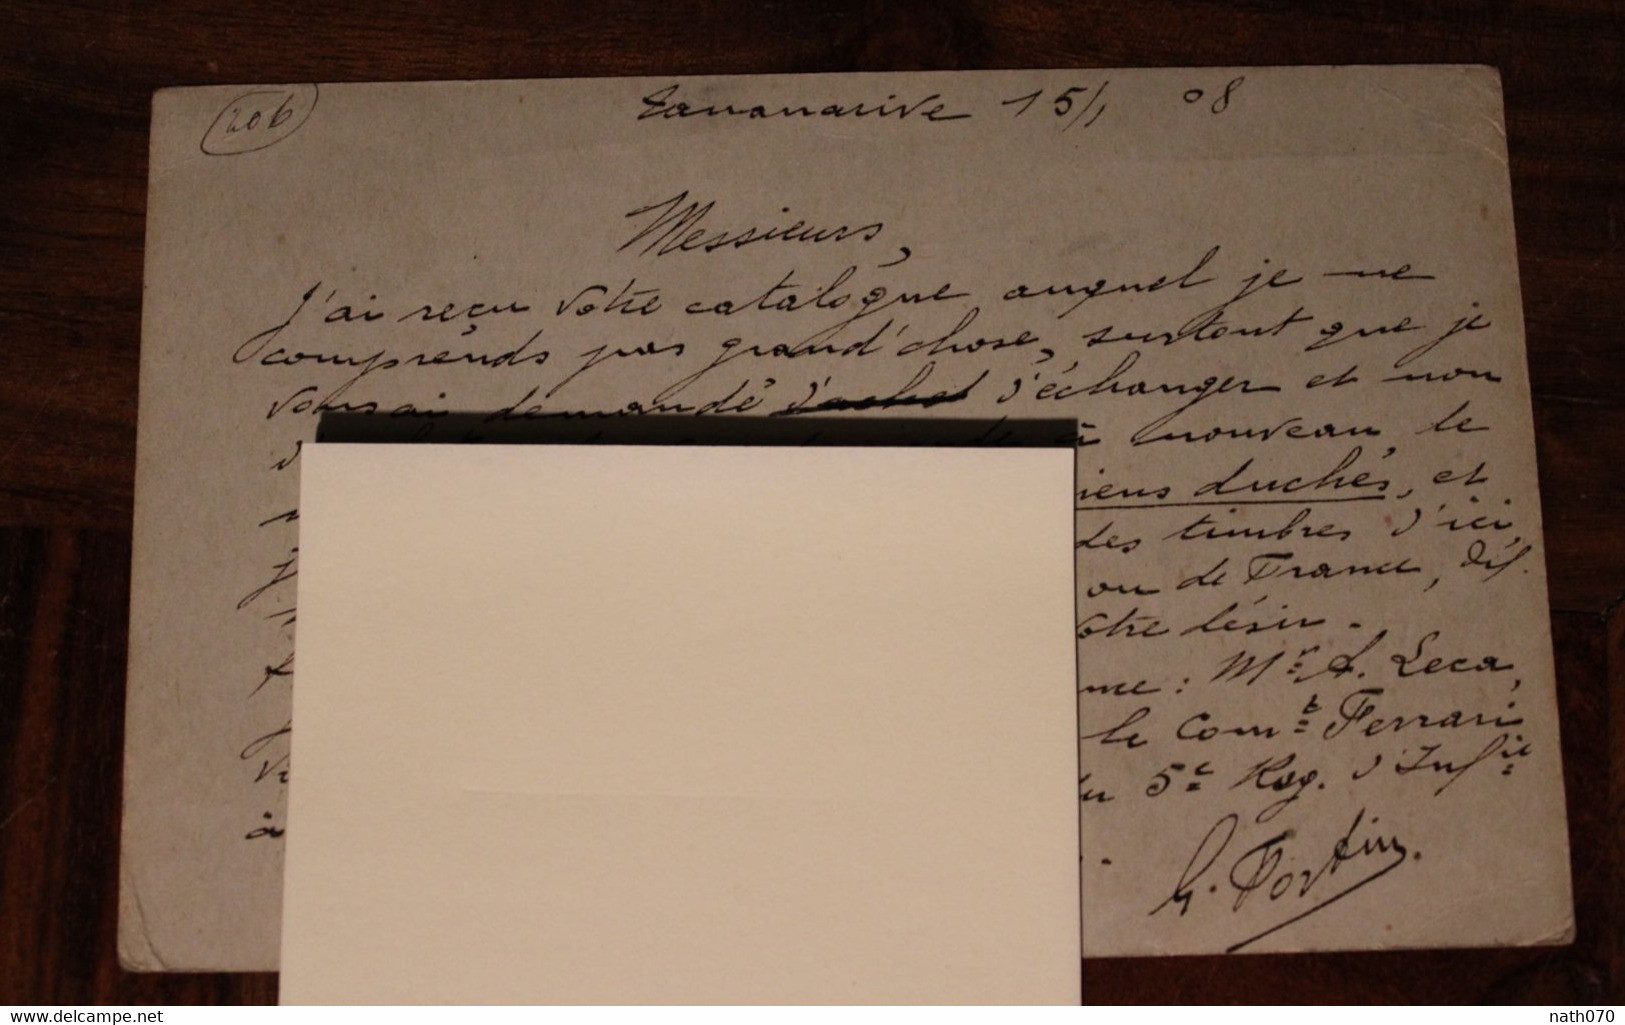 206
Tananarive 15/1 08
Messieurs,
J'ai reçu votre catalogue auquel je ne
comprends pas grand'chose, surtout que je
vous ai demandé d'échanger et non
à nouveau le
iens duchés, et
des timbres d'ici,
ou de France,
votre désir.
me : Mr A. Leca,
le Comt Ferrari
du 5e Reg. d'Infie
à
G. Fortin.
www.delcampe.net
nath070